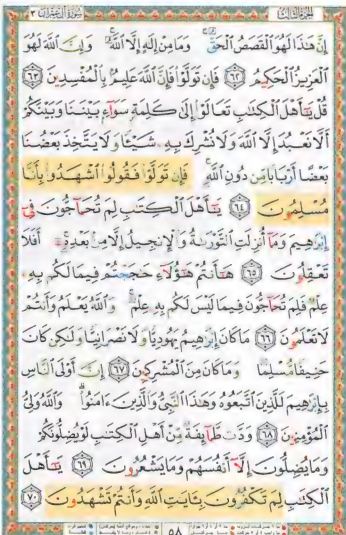 الجزء الثالث سورة آل عمران ٣
إِنَّ هَٰذَا لَهُوَ ٱلْقَصَصُ ٱلْحَقُّ ۚ وَمَا مِنْ إِلَٰهٍ إِلَّا ٱللَّهُ ۚ وَإِنَّ ٱللَّهَ لَهُوَ
ٱلْعَزِيزُ ٱلْحَكِيمُ ٦٢ فَإِن تَوَلَّوْا۟ فَإِنَّ ٱللَّهَ عَلِيمٌۢ بِٱلْمُفْسِدِينَ ٦٣
قُلْ يَٰٓأَهْلَ ٱلْكِتَٰبِ تَعَالَوْا۟ إِلَىٰ كَلِمَةٍ سَوَآءٍۭ بَيْنَنَا وَبَيْنَكُمْ
أَلَّا نَعْبُدَ إِلَّا ٱللَّهَ وَلَا نُشْرِكَ بِهِۦ شَيْـًٔا وَلَا يَتَّخِذَ بَعْضُنَا
بَعْضًا أَرْبَابًا مِّن دُونِ ٱللَّهِ ۚ فَإِن تَوَلَّوْا۟ فَقُولُوا۟ ٱشْهَدُوا۟ بِأَنَّا
مُسْلِمُونَ ٦٤ يَٰٓأَهْلَ ٱلْكِتَٰبِ لِمَ تُحَآجُّونَ فِىٓ
إِبْرَٰهِيمَ وَمَآ أُنزِلَتِ ٱلتَّوْرَىٰةُ وَٱلْإِنجِيلُ إِلَّا مِنۢ بَعْدِهِۦٓ ۚ أَفَلَا
تَعْقِلُونَ ٦٥ هَٰٓأَنتُمْ هَٰٓؤُلَآءِ حَٰجَجْتُمْ فِيمَا لَكُم بِهِۦ
عِلْمٌ فَلِمَ تُحَآجُّونَ فِيمَا لَيْسَ لَكُم بِهِۦ عِلْمٌ ۚ وَٱللَّهُ يَعْلَمُ وَأَنتُمْ
لَا تَعْلَمُونَ ٦٦ مَا كَانَ إِبْرَٰهِيمُ يَهُودِيًّا وَلَا نَصْرَانِيًّا وَلَٰكِن كَانَ
حَنِيفًا مُّسْلِمًا وَمَا كَانَ مِنَ ٱلْمُشْرِكِينَ ٦٧ إِنَّ أَوْلَى ٱلنَّاسِ
بِإِبْرَٰهِيمَ لَلَّذِينَ ٱتَّبَعُوهُ وَهَٰذَا ٱلنَّبِىُّ وَٱلَّذِينَ ءَامَنُوا۟ ۗ وَٱللَّهُ وَلِىُّ
ٱلْمُؤْمِنِينَ ٦٨ وَدَّت طَّآئِفَةٌ مِّنْ أَهْلِ ٱلْكِتَٰبِ لَوْ يُضِلُّونَكُمْ
وَمَا يُضِلُّونَ إِلَّآ أَنفُسَهُمْ وَمَا يَشْعُرُونَ ٦٩ يَٰٓأَهْلَ
ٱلْكِتَٰبِ لِمَ تَكْفُرُونَ بِـَٔايَٰتِ ٱللَّهِ وَأَنتُمْ تَشْهَدُونَ ٧٠
٥٨